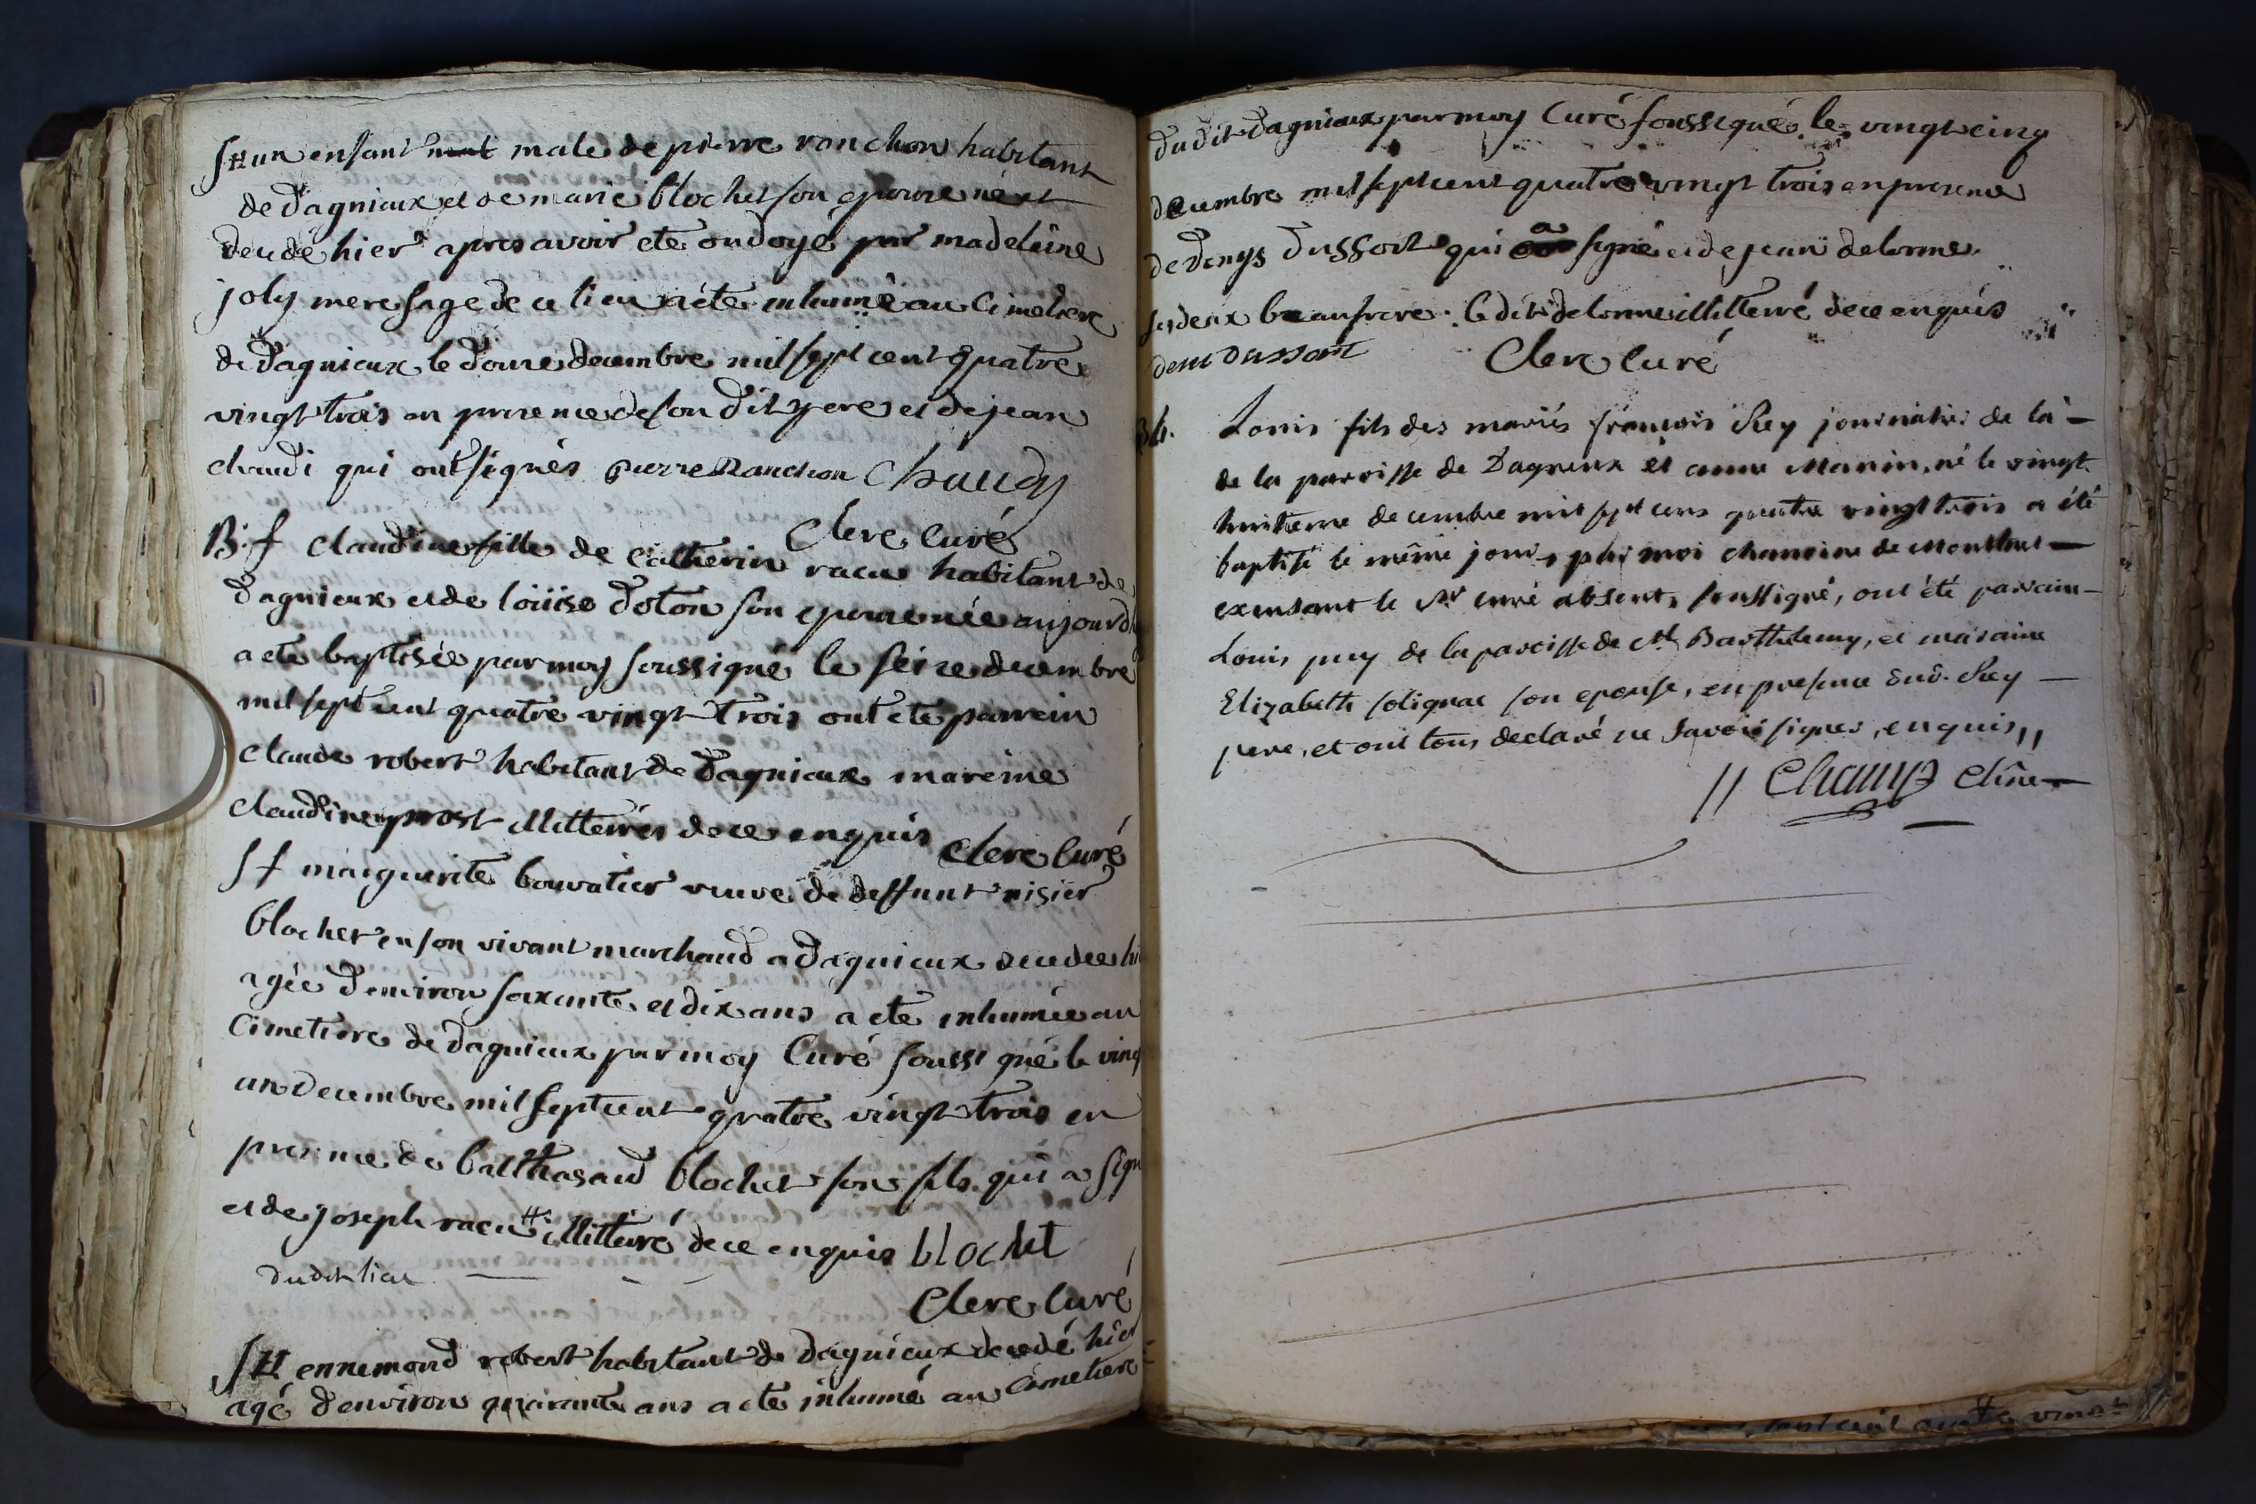 SH un enfant male de pierre ronchon habitant
de Dagnieux et de marie blochet son epouse né et
decedé hier apres avoir ete ondoyé par madeleine
joly mere sage de ce lieu a ete inhumé au Cimetiere
de Dagnieux le douze decembre mil sept cent quatre
vingt trois en presence de son dit pere et de jean
chaudi qui ont signés pierre Ranchon Chaudy
Clerc curé
B. f claudine fille de catherin racu habitant de
Dagnieux et de loüise Doton son epouse née aujourd
a ete baptisée par moy soussigné le seize decembre
mil sept cent quatre vingt trois ont ete parrein
claude robert habitant de Dagnieux mareine
claudine prost illitterés de ce enquis Clerc Curé
S f marguerite bouvatier veuve de deffunt nisier
blochet en son vivant marchand a Dagnieux decedee hi
agée d'environ soixante et dix ans a ete inhumée au
Cimetiere de Dagnieux par moy Curé soussigné le ving
un decembre mil sept cent quatre vingt trois en
presence de balthasard blochet son fils qui a sign
et de joseph racu # illitteré de ce enquis blochet
dudit lieu
Clerc Curé
SH ennemond robert habitant de Dagnieux decedé hier
agé d'environ quarante ans a ete inhumé au Cimetiere
dudit Dagnieux par moy Curé soussigné le vingt cinq
decembre mil sept cent quatre vingt trois en presence
de Denys Dussort qui a signé et de jean delorme
ses deux beaufrere. le dit delorme illitterré de ce enquis
deni dussort Clerc Curé
Bh. Louis fils des mariés françois Rey journalier de la
de la paroisse de Dagneux et anne Manin, né le vingt
huitieme decembre mil sept cens quatre vingt trois a été
baptisé le même jour, par moi chanoine de Montluel
exensant le Sr curé absent, soussigné, ont été parrain
Louis puy de la paroisse de St Barthelemy, et maraine
Elizabeth solignac son epouse, en presence dud. Rey
pere, et ont tous declaré ne savoir signer, enquis,,
// Champ chne